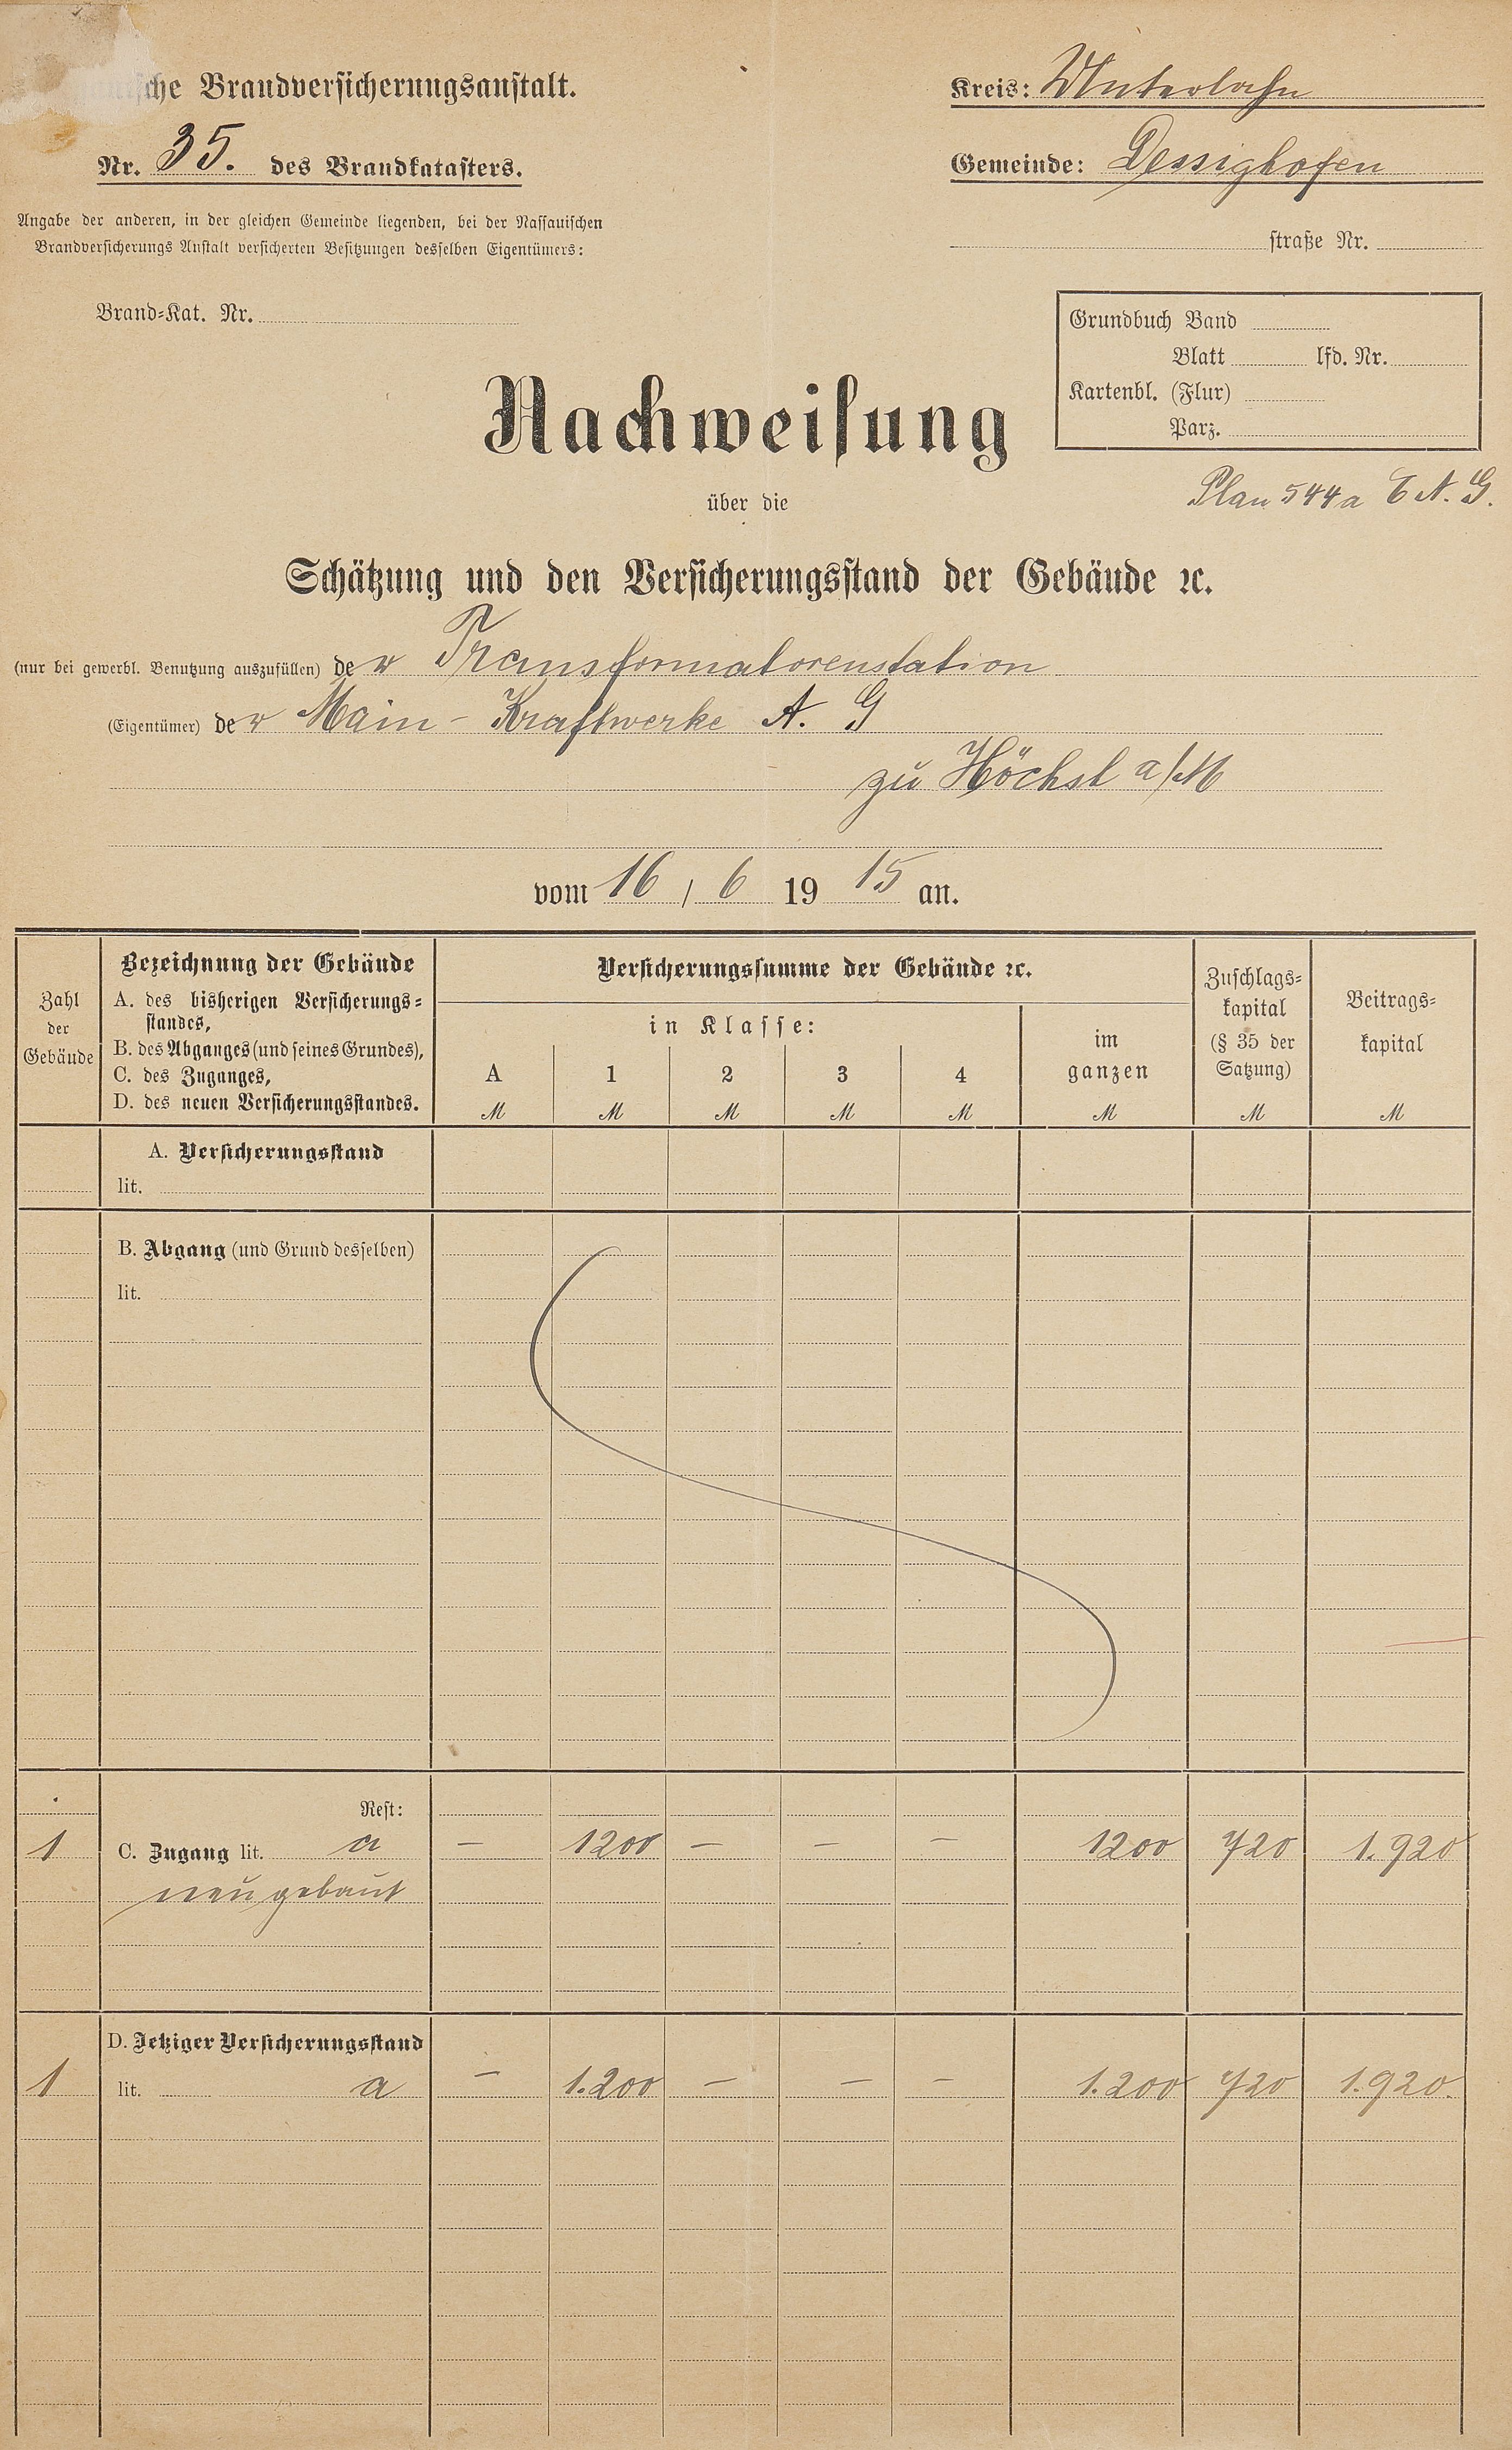 sche Brandversicherungsanstalt.
Nr. 35. des Brandkatasters.
Angabe der anderen, in der gleichen Gemeinde liegenden, bei der Nassauischen
Brandversicherungs Anstalt versicherten Besitzungen desselben Eigentümers:
Brand-Kat. Nr.
Kreis: Unterlahn
Gemeinde: Dessighofen
straße Nr.
Grundbuch Band
Blatt lfd. Nr.
Kartenbl. (Flur)
Parz.
Plan 544a C N. G.
Nachweisung
über die
Schätzung und den Versicherungsstand der Gebäude ꝛc.
(nur bei gewerbl. Benutzung auszufüllen) der Transformatorenstation
(Eigentümer) der Main-Kraftwerke A. G
zu Höchst a/M
vom 16 / 6 1915 an.
Zahl der Gebäude
Bezeichnung der Gebäude
A. des bisherigen Versicherungs-
standes,
B. des Abganges (und seines Grundes),
C. des Zuganges,
D. des neuen Versicherungsstandes.
Versicherungssumme der Gebäude ꝛc.
in Klasse:
A 1 2 3 4
M M M M M
im
ganzen
M
Zuschlags-
kapital
(§ 35 der
Satzung)
M
Beitrags-
kapital
M
A. Versicherungsstand
lit.
B. Abgang (und Grund desselben)
lit.
Rest:
1 C. Zugang lit. a – 1200 – – – 1200 720 1.920
neu gebaut
D. Jetziger Versicherungsstand
1 lit. a – 1.200 – – – 1.200 720 1.920.